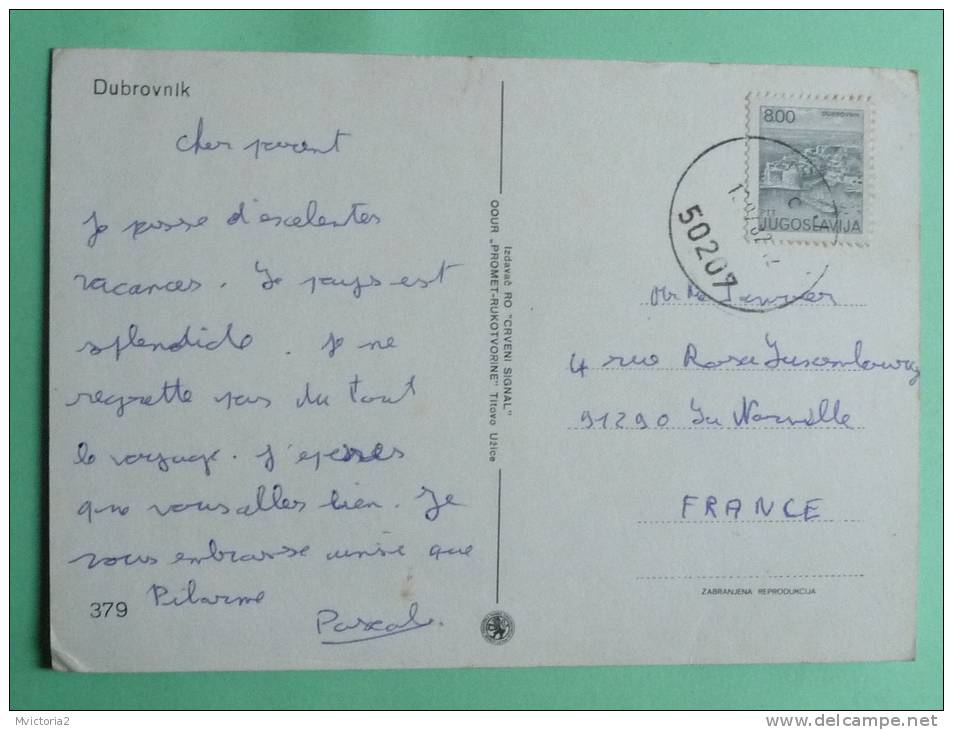 Dubrovnik
Cher parent
Je passe d'excelentes
vacances. Le pays est
splendide. Je ne
regrette pas du tout
le voyage. J'esperes
que vous alles bien. Je
vous enbrasse que
Pascal.
379
Izdavač RO "CRVENI SIGNAL"
OOUR „PROMET-RUKOTVORINE" Titovo Užice
8.00
DUBROVNIK
PTT
JUGOSLAVIJA
50207
Mr Me
4 rue Rosa Luxembourg
91290 La Norville
FRANCE
ZABRANJENA REPRODUKCIJA
Mvictoria2
www.delcampe.net